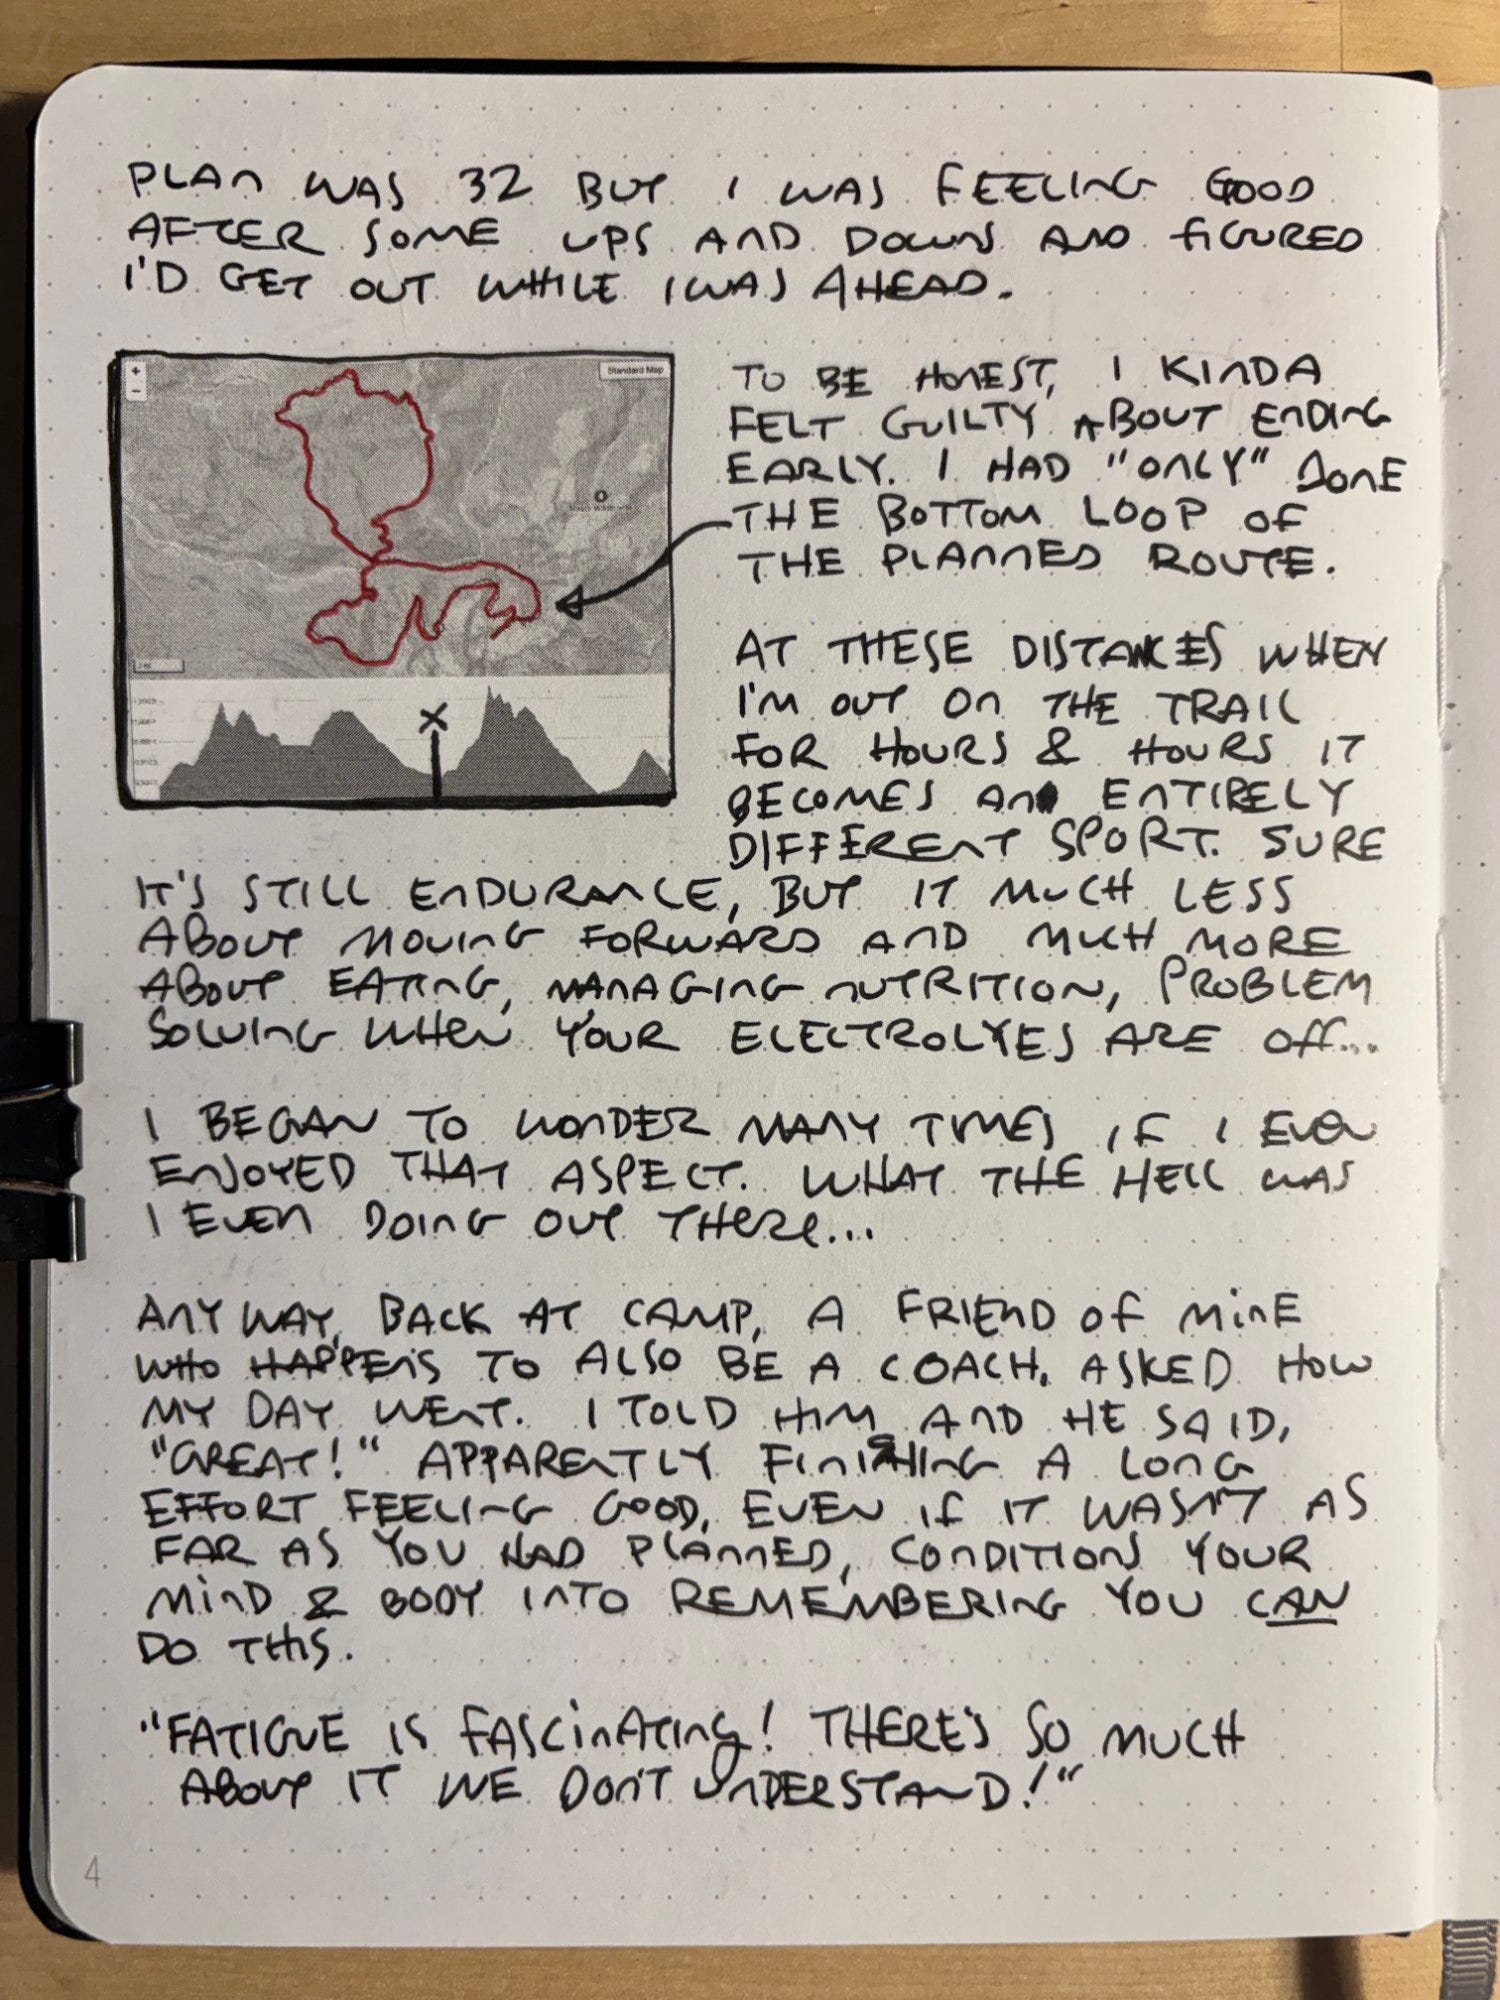 PLAN WAS 32 BUT I WAS FEELING GOOD
AFTER SOME UPS AND DOWNS AND FIGURED
I'D GET OUT WHILE I WAS AHEAD.
+
-
Standard Map
TO BE HONEST, I KINDA
FELT GUILTY ABOUT ENDING
EARLY. I HAD "ONLY" DONE
THE BOTTOM LOOP OF
THE PLANNED ROUTE.
X
AT THESE DISTANCES WHEN
I'M OUT ON THE TRAIL
FOR HOURS & HOURS IT
BECOMES AN ENTIRELY
DIFFERENT SPORT. SURE
IT'S STILL ENDURANCE, BUT IT MUCH LESS
ABOUT MOVING FORWARD AND MUCH MORE
ABOUT EATING, MANAGING NUTRITION, PROBLEM
SOLVING WHEN YOUR ELECTROLYES ARE OFF...
I BEGAN TO WONDER MANY TIMES IF I EVEN
ENJOYED THAT ASPECT. WHAT THE HELL WAS
I EVEN DOING OUT THERE...
ANYWAY, BACK AT CAMP, A FRIEND OF MINE
WHO HAPPENS TO ALSO BE A COACH, ASKED HOW
MY DAY WENT. I TOLD HIM AND HE SAID,
"GREAT!" APPARENTLY FINISHING A LONG
EFFORT FEELING GOOD, EVEN IF IT WASN'T AS
FAR AS YOU HAD PLANNED, CONDITIONS YOUR
MIND & BODY INTO REMEMBERING YOU CAN
DO THIS.
"FATIGUE IS FASCINATING! THERE'S SO MUCH
ABOUT IT WE DON'T UNDERSTAND!"
4